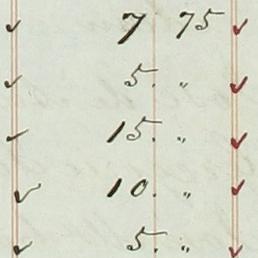 ✓ 7 75 ✓
✓ 5. " ✓
✓ 15. " ✓
✓ 10. " ✓
✓ 5. " ✓